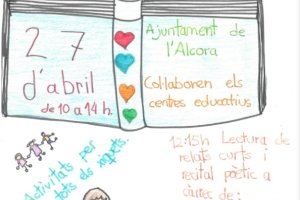 27
d'abril
de 10 a 14 h.
Ajuntament de
l'Alcora
Col·laboren els
centres educatius
Activitats per
tots els xiquets.
12:15h Lectura de
relats curts i
recital poètic a
càrrec de: